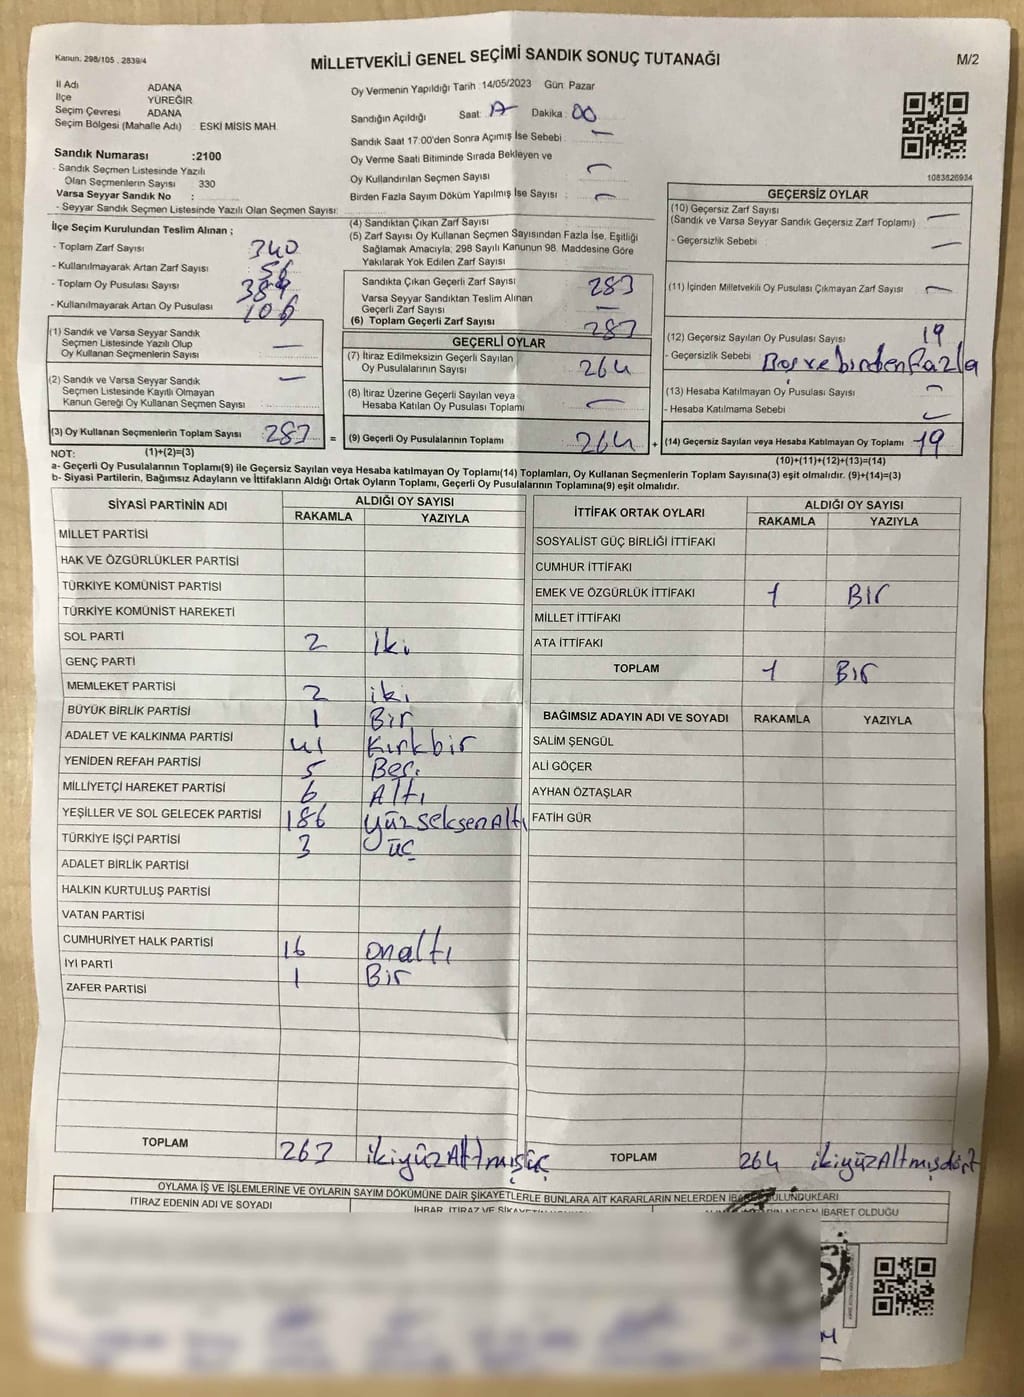 Kanun: 298/105 , 2839/4
MİLLETVEKİLİ GENEL SEÇİMİ SANDIK SONUÇ TUTANAĞI
M/2
İl Adı ADANA
İlçe YÜREĞİR
Seçim Çevresi ADANA
Seçim Bölgesi (Mahalle Adı) : ESKİ MİSİS MAH.
Sandık Numarası :2100
- Sandık Seçmen Listesinde Yazılı
Olan Seçmenlerin Sayısı 330
Varsa Seyyar Sandık No :
- Seyyar Sandık Seçmen Listesinde Yazılı Olan Seçmen Sayısı:
Oy Vermenin Yapıldığı Tarih :14/05/2023 Gün: Pazar
Sandığın Açıldığı Saat: Dakika: 00
Sandık Saat 17:00'den Sonra Açımış İse Sebebi : —
Oy Verme Saati Bitiminde Sırada Bekleyen ve
Oy Kullandırılan Seçmen Sayısı —
Birden Fazla Sayım Döküm Yapılmış İse Sayısı : —
1083826934
İlçe Seçim Kurulundan Teslim Alınan ;
- Toplam Zarf Sayısı 340
- Kullanılmayarak Artan Zarf Sayısı
- Toplam Oy Pusulası Sayısı
- Kullanılmayarak Artan Oy Pusulası 106
(1) Sandık ve Varsa Seyyar Sandık
Seçmen Listesinde Yazılı Olup
Oy Kullanan Seçmenlerin Sayısı —
(2) Sandık ve Varsa Seyyar Sandık
Seçmen Listesinde Kayıtlı Olmayan
Kanun Gereği Oy Kullanan Seçmen Sayısı —
(3) Oy Kullanan Seçmenlerin Toplam Sayısı 283 =
(4) Sandıktan Çıkan Zarf Sayısı
(5) Zarf Sayısı Oy Kullanan Seçmen Sayısından Fazla İse, Eşitliği
Sağlamak Amacıyla; 298 Sayılı Kanunun 98. Maddesine Göre
Yakılarak Yok Edilen Zarf Sayısı
Sandıkta Çıkan Geçerli Zarf Sayısı 283
Varsa Seyyar Sandıktan Teslim Alınan
Geçerli Zarf Sayısı —
(6) Toplam Geçerli Zarf Sayısı 283
GEÇERLİ OYLAR
(7) İtiraz Edilmeksizin Geçerli Sayılan
Oy Pusulalarının Sayısı 264
(8) İtiraz Üzerine Geçerli Sayılan veya
Hesaba Katılan Oy Pusulası Toplamı —
(9) Geçerli Oy Pusulalarının Toplamı 264 +
GEÇERSİZ OYLAR
(10) Geçersiz Zarf Sayısı
(Sandık ve Varsa Seyyar Sandık Geçersiz Zarf Toplamı) —
- Geçersizlik Sebebi : —
(11) İçinden Milletvekili Oy Pusulası Çıkmayan Zarf Sayısı : —
(12) Geçersiz Sayılan Oy Pusulası Sayısı : 19
- Geçersizlik Sebebi Boş ve birden fazla
(13) Hesaba Katılmayan Oy Pusulası Sayısı : —
- Hesaba Katılmama Sebebi —
(14) Geçersiz Sayılan veya Hesaba Katılmayan Oy Toplamı 19
NOT: (1)+(2)=(3)
(10)+(11)+(12)+(13)=(14)
a- Geçerli Oy Pusulalarının Toplamı(9) ile Geçersiz Sayılan veya Hesaba katılmayan Oy Toplamı(14) Toplamları, Oy Kullanan Seçmenlerin Toplam Sayısına(3) eşit olmalıdır. (9)+(14)=(3)
b- Siyasi Partilerin, Bağımsız Adayların ve İttifakların Aldığı Ortak Oyların Toplamı, Geçerli Oy Pusulalarının Toplamına(9) eşit olmalıdır.
SİYASİ PARTİNİN ADI ALDIĞI OY SAYISI
RAKAMLA YAZIYLA
MİLLET PARTİSİ
HAK VE ÖZGÜRLÜKLER PARTİSİ
TÜRKİYE KOMÜNİST PARTİSİ
TÜRKİYE KOMÜNİST HAREKETİ
SOL PARTİ 2 İki
GENÇ PARTİ
MEMLEKET PARTİSİ 2 iki
BÜYÜK BİRLİK PARTİSİ 1 Bir
ADALET VE KALKINMA PARTİSİ 41 Kırkbir
YENİDEN REFAH PARTİSİ 5 Beş
MİLLİYETÇİ HAREKET PARTİSİ 6 Altı
YEŞİLLER VE SOL GELECEK PARTİSİ 186 yüzseksenaltı
TÜRKİYE İŞÇİ PARTİSİ 3 üç
ADALET BİRLİK PARTİSİ
HALKIN KURTULUŞ PARTİSİ
VATAN PARTİSİ
CUMHURİYET HALK PARTİSİ 16 onaltı
İYİ PARTİ 1 Bir
ZAFER PARTİSİ
TOPLAM 263 ikiyüzAltmışüç
İTTİFAK ORTAK OYLARI ALDIĞI OY SAYISI
RAKAMLA YAZIYLA
SOSYALİST GÜÇ BİRLİĞİ İTTİFAKI
CUMHUR İTTİFAKI
EMEK VE ÖZGÜRLÜK İTTİFAKI 1 Bir
MİLLET İTTİFAKI
ATA İTTİFAKI
TOPLAM 1 Bir
BAĞIMSIZ ADAYIN ADI VE SOYADI RAKAMLA YAZIYLA
SALİM ŞENGÜL
ALİ GÖÇER
AYHAN ÖZTAŞLAR
FATİH GÜR
TOPLAM 264 ikiyüzAltmışdört
OYLAMA İŞ VE İŞLEMLERİNE VE OYLARIN SAYIM DÖKÜMÜNE DAİR ŞİKAYETLERLE BUNLARA AİT KARARLARIN NELERDEN İBARET BULUNDUKLARI
İTİRAZ EDENİN ADI VE SOYADI
İHBAR, İTİRAZ VE
İBARET OLDUĞU